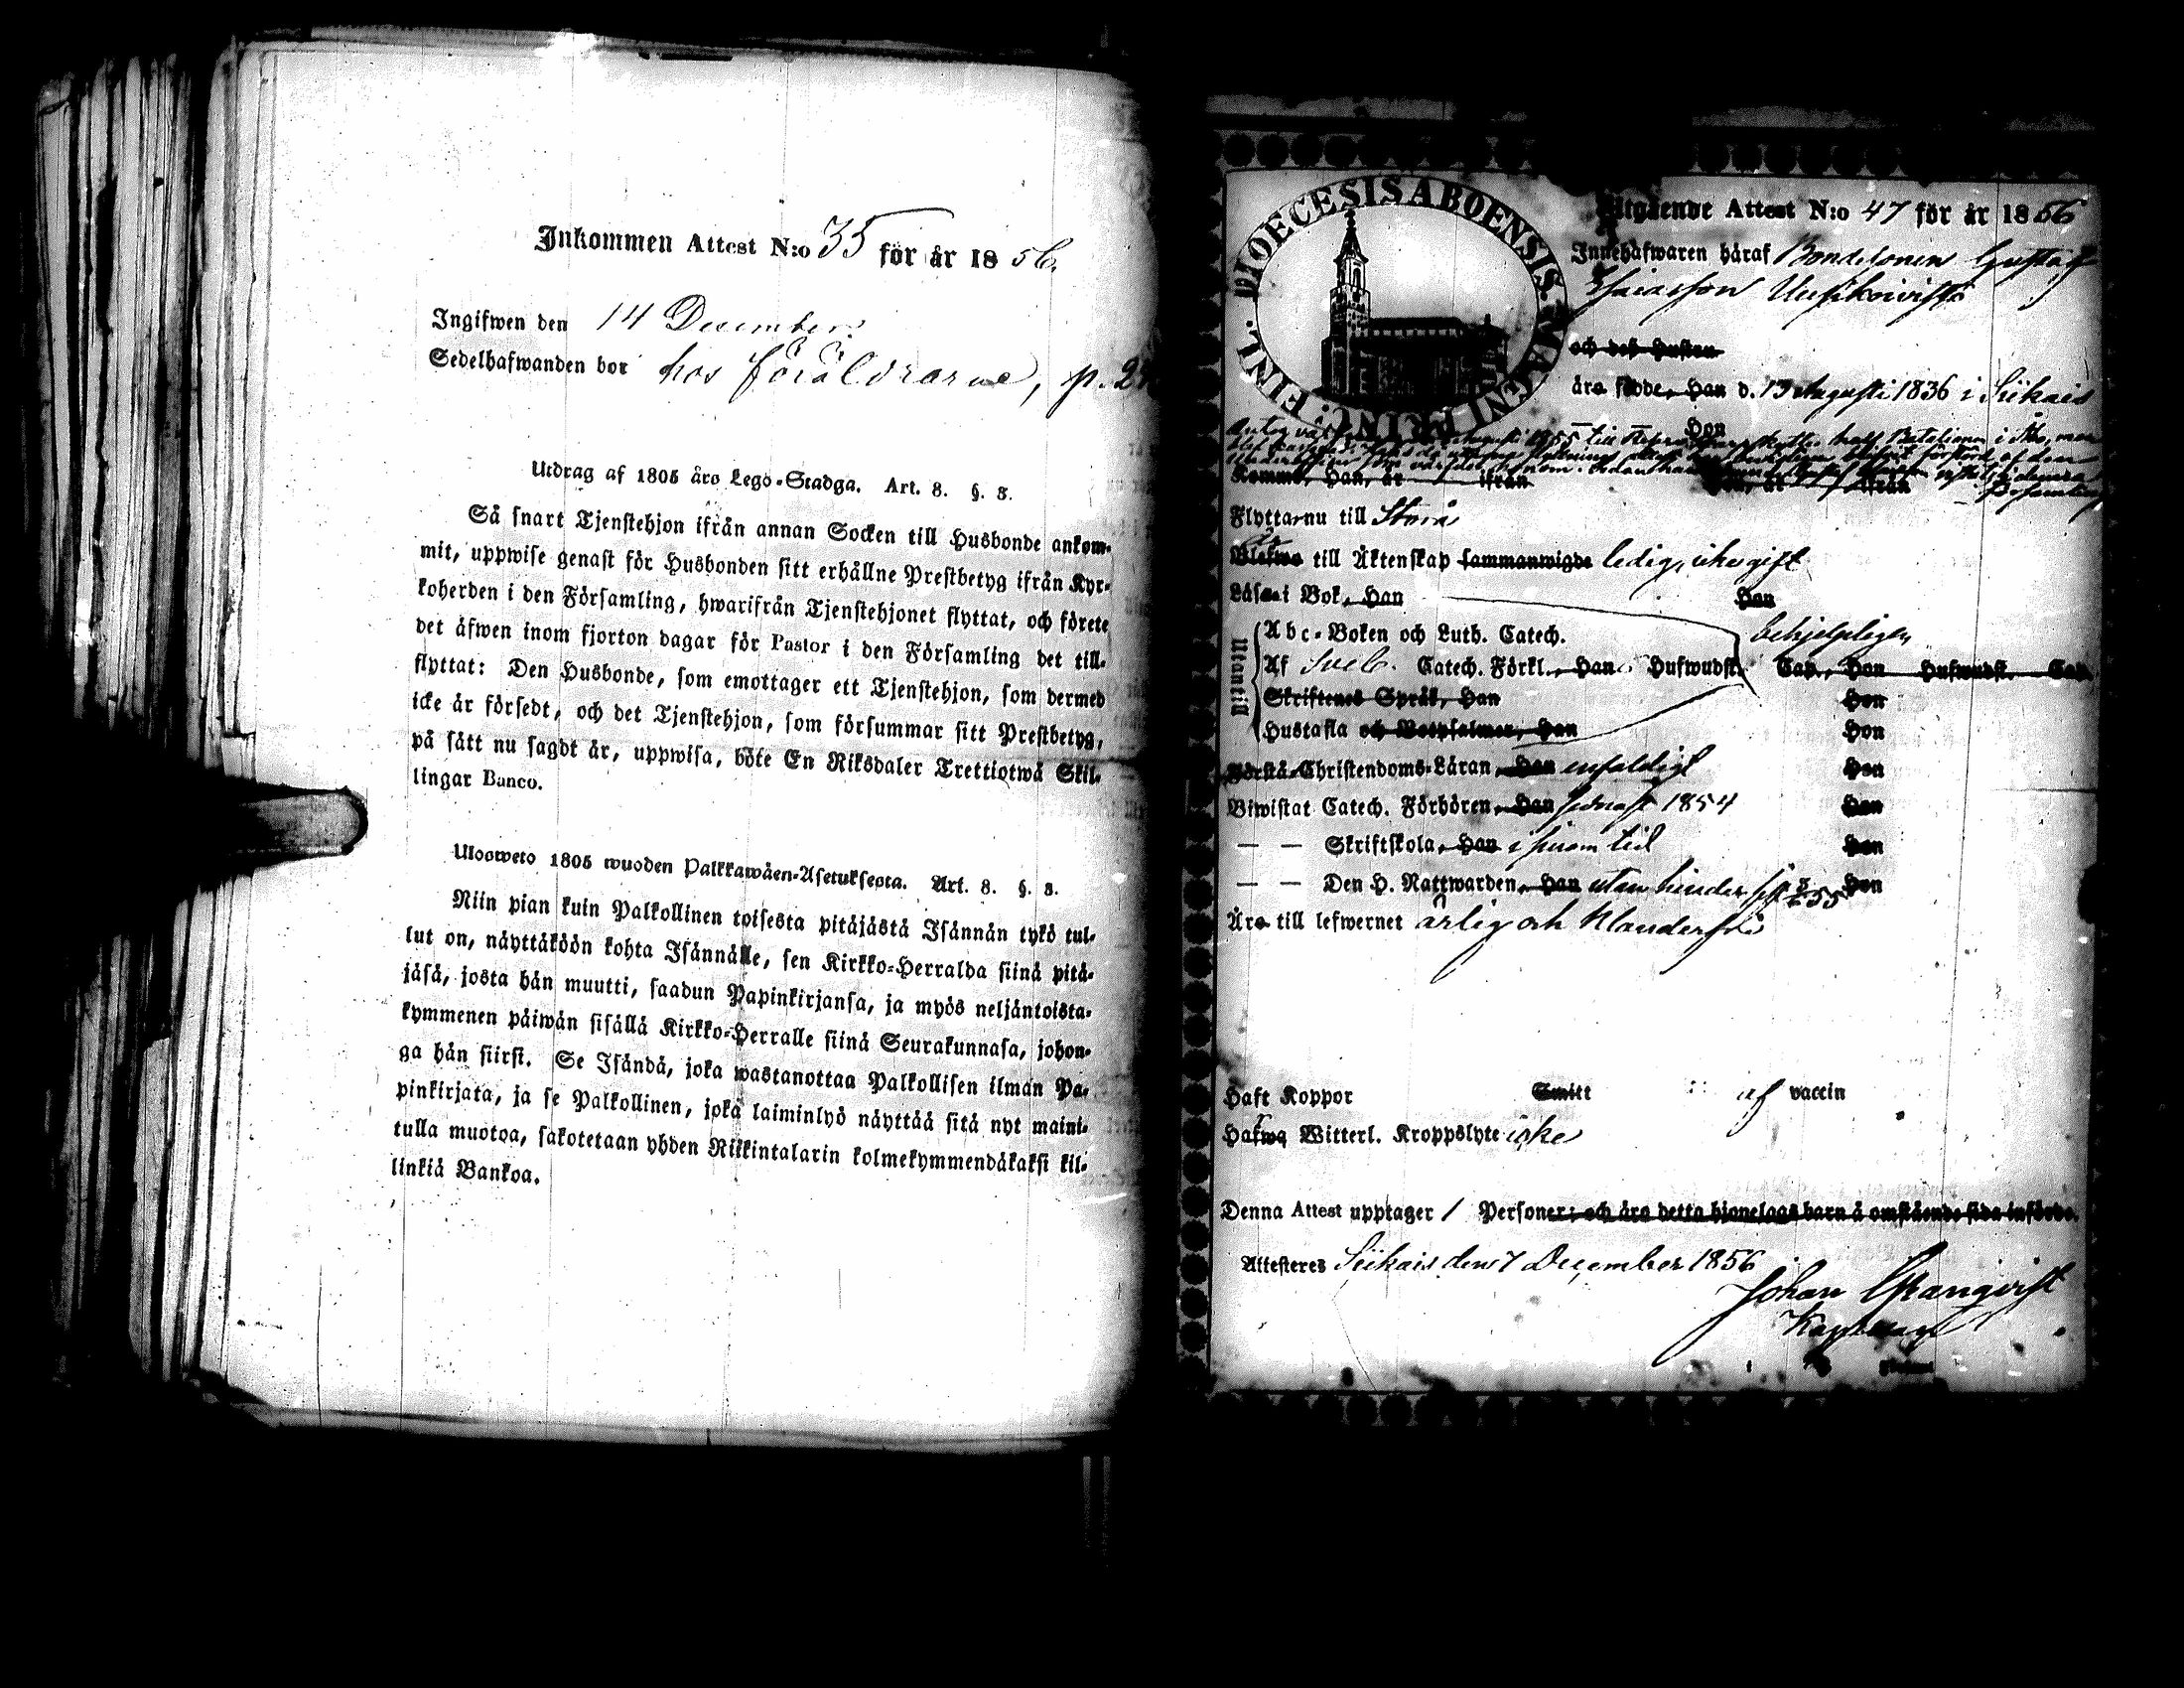 Inkommen Attest N:o 35 för år 1856.
Ingifwen den 14 December
Sedelhafwanden bor hos föräldrarne, p.
Utdrag af 1805 års Lego-Stadga. Art. 8. §. 3.
Så snart Tjenstehjon ifrån annan Socken till Husbonde ankom-
mit, uppwise genast för Husbonden sitt erhållne Prestbetyg ifrån Kyr-
koherden i den Församling, hwarifrån Tjenstehjonet flyttat, och förete
det äfwen inom fjorton dagar för Pastor i den Församling det till-
flyttat: Den Husbonde, som emottager ett Tjenstehjon, som dermed
icke är försedt, och det Tjenstehjon, som försummar sitt Prestbetyg,
på sätt nu sagdt är, uppwisa, böte En Riksdaler Trettiotwå Skil-
lingar Banco.
Ulosweto 1805 wuoden Palkkawäen-Asetuksesta. Art. 8. §. 3.
Niin pian kuin Palkollinen toisesta pitäjästä Isännän tykö tul-
lut on, näyttäköön kohta Isännälle, sen Kirkko-Herralda siinä pitä-
jäsä, josta hän muutti, saadun Papinkirjansa, ja myös neljäntoista-
kymmenen päiwän sisällä Kirkko-Herralle siinä Seurakunnasa, johon-
ga hän siirsi. Se Isändä, joka wastanottaa Palkollisen ilman Pa-
pinkirjata, ja se Palkollinen, joka laiminlyö näyttää sitä nyt maini-
tulla muotoa, sakotetaan yhden Riikintalarin kolmekymmendäkaksi kil-
linkiä Bankoa.
DIOECESIS ABOENSIS. MAGNI PRINC: FINL.
Utgående Attest N:o 47 för år 1856
Innehafwaren häraf Bondesonen Gustaf
Esaiasson Uusikoivisto
och deß hustru
äro födde, Han d. 13 Augusti 1836 i Siikais
Hon
Komma, Han, år ifrån Hon, år ifrån
Flytta nu till Storå
Blefwo till Äktenskap sammanwigde ledig, icke gift
Läsa i Bok, Han Hon
Utantill
Abc-Boken och Luth. Catech. behjelpligen
Af Sveb. Catech. Förkl., Han Hufwudst. Cap., Hon Hufwudst. Cap.
Skriftenes Språk, Han Hon
Hustafla och Botpsalmer, Han Hon
Förstå Christendoms-Läran, Han enfaldigt Hon
Biwistat Catech. Förhören, Han sednast 1854 Hon
— — Skriftskola, Han i sinom tid Hon
— — Den H. Nattwarden, Han utan hinder Hon
Äro till lefwernet ärlig och klanderfri
Haft Koppor Smitt af vaccin
Hafwa Witterl. Kroppslyte icke
Denna Attest upptager 1 Personer; och äro detta hjonelags barn å omstående sida införde.
Attesteres Siikais den 7 December 1856
Johan Granqvist
Kappellan